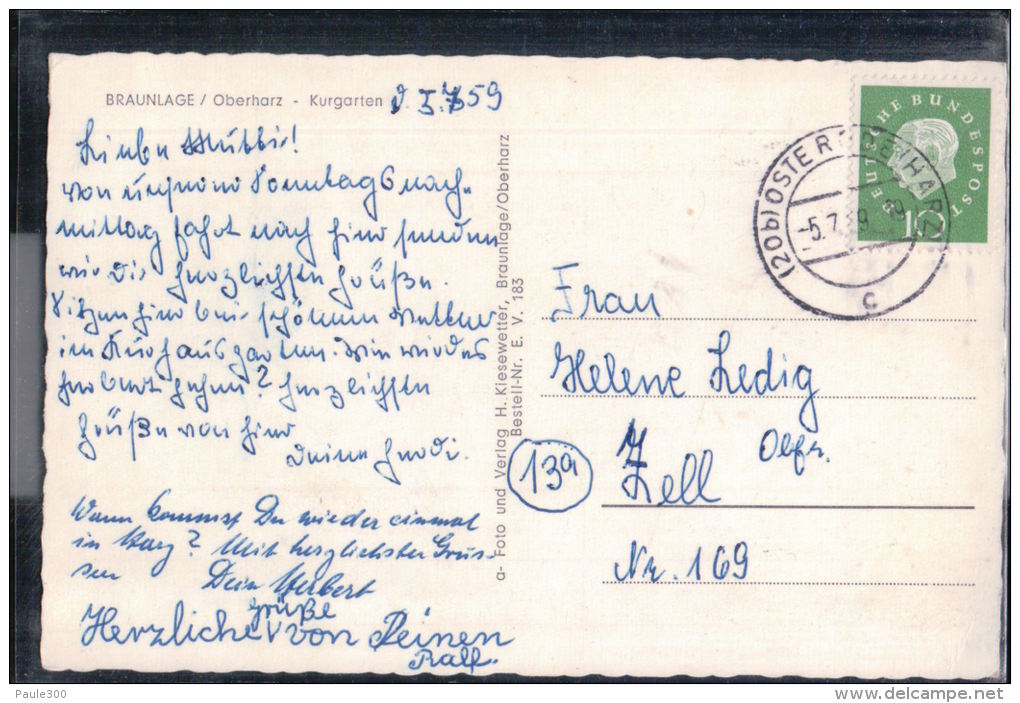 BRAUNLAGE / Oberharz - Kurgarten
d. 5.7.59
Liebe Mutti!
von unserer Sonntagsnach-
mittag fahrt nach hier senden
wir die herzlichsten Grüße.
Sitzen hier bei schönem Wetter
im Kurhausgarten. Wie wird es
gehen? herzlichsten
Grüße von hier
Deine
Wann kommst Du wieder einmal
in Harz? Mit herzlichsten Grüs-
sen Dein Herbert
Grüße
Herzliche von Deinen
Ralf.
a- Foto und Verlag H. Kiesewetter, Braunlage/Oberharz
Bestell-Nr. E. V. 183
DEUTSCHE BUNDESPOST
10
(20b) OSTERODE (HARZ)
-5.7.59
c
Frau
Helene Ledig
13a
Zell Obfr.
Nr. 169
Paule300
www.delcampe.net